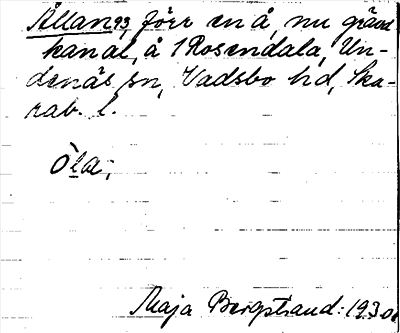 Ållan 93, förr en å, nu grävd
kanal, å 1 Rosendala, Un-
denäs sn, Vadsbo hd, Ska-
rab. l.
Òla,
Maja Bergstrand: 1930.